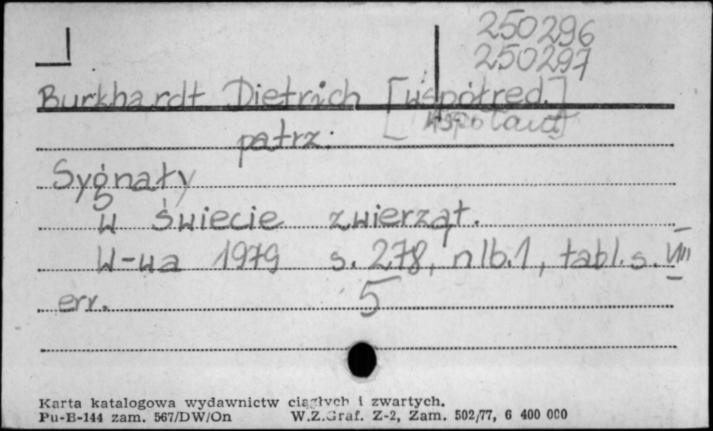 250296
250297
Burkhardt Dietrich [współred.]
współaut]
patrz:
Sygnały
w świecie zwierząt.
W-wa 1979 s. 278, nlb. 1, tabl. s. VIII
err. 5
Karta katalogowa wydawnictw ciągłych i zwartych.
Pu-B-144 zam. 567/DW/On W.Z.Graf. Z-2, Zam. 502/77, 6 400 000